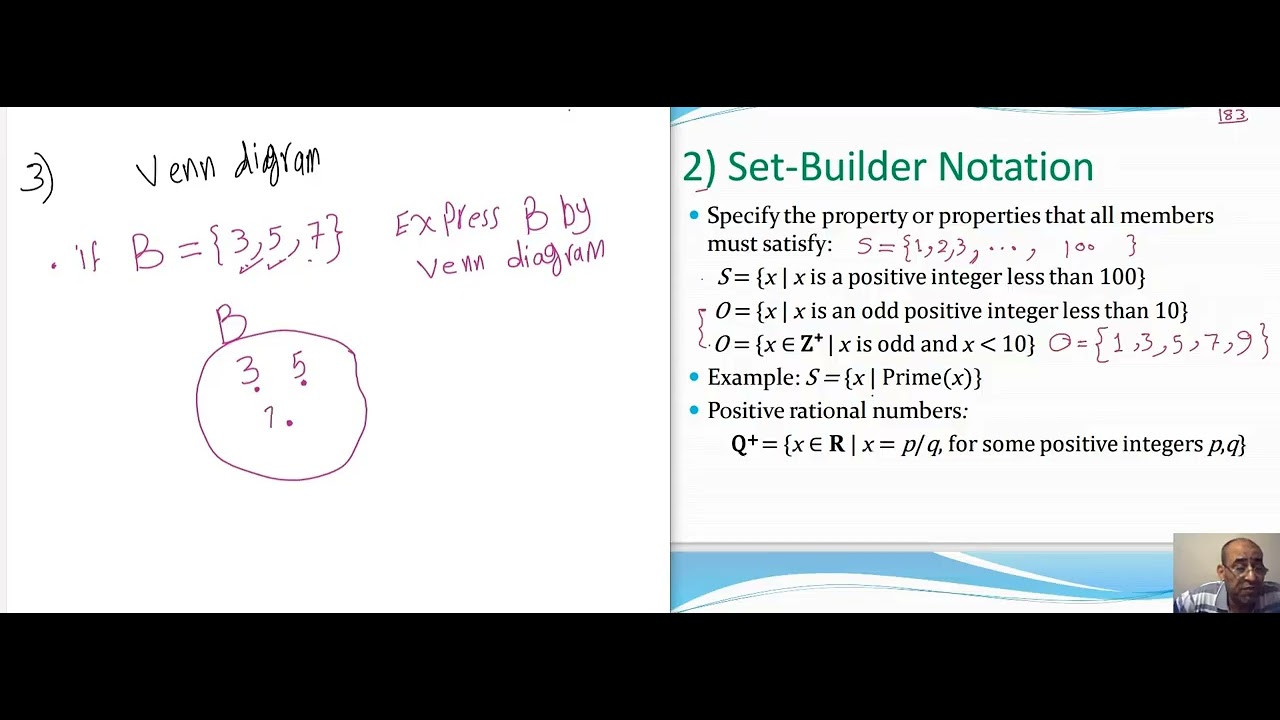 3) Venn digram
. if B = {3, 5, 7} Express B by
venn diagram
B
3 5
7
183
2) Set-Builder Notation
• Specify the property or properties that all members
must satisfy: S = {1, 2, 3, ..., 100 }
S = {x | x is a positive integer less than 100}
O = {x | x is an odd positive integer less than 10}
O = {x ∈ Z⁺ | x is odd and x < 10} O = {1, 3, 5, 7, 9}
• Example: S = {x | Prime(x)}
• Positive rational numbers:
Q⁺ = {x ∈ R | x = p/q, for some positive integers p,q}